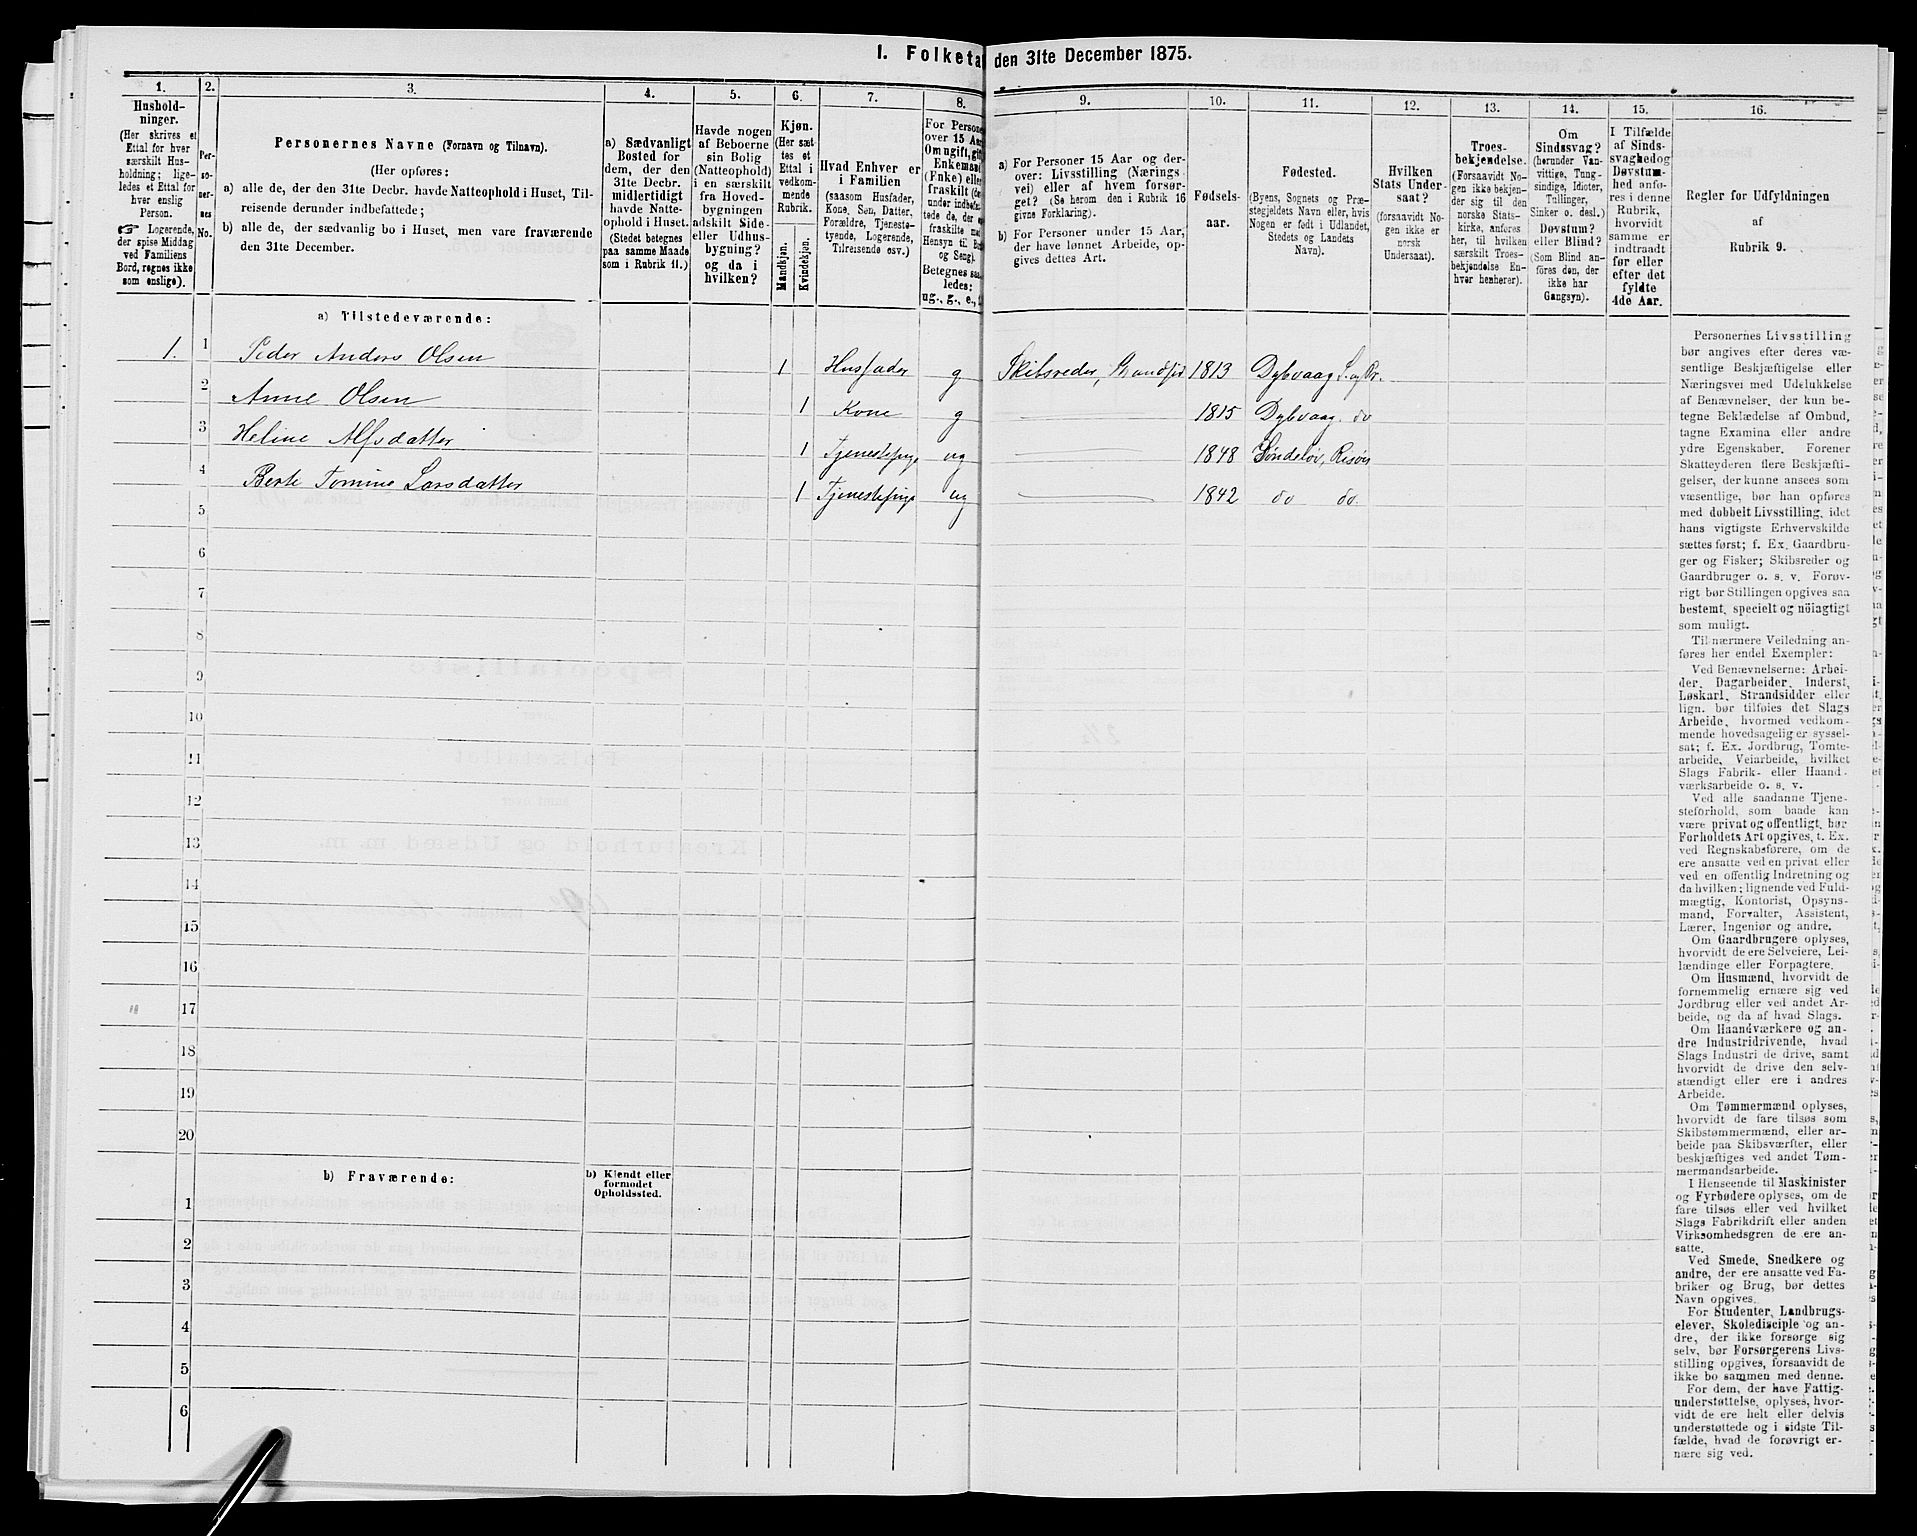 I. Folketa den 31te December 1875.
1. 2. 3. 4. 5. 6. 7. 8. 9. 10. 11. 12. 13. 14. 15. 16.
Hushold-
ninger.
(Her skrives et
Ettal for hver
særskilt Hus-
holdning; lige-
ledes et Ettal for
hver enslig
Person.
☞ Logerende,
der spise Middag
ved Familiens
Bord, regnes ikke
som enslige).
Per-
so-
ner-
nes
No.
Personernes Navne (Fornavn og Tilnavn).
(Her opføres:
a) alle de, der den 31te Decbr. havde Natteophold i Huset, Til-
reisende derunder indbefattede;
b) alle de, der sædvanlig bo i Huset, men vare fraværende
den 31te December.
a) Sædvanligt
Bosted for
dem, der den
31te Decbr.
midlertidigt
havde Natte-
ophold i Huset.
(Stedet betegnes
paa samme Maade
som i Rubrik 11.)
Havde nogen
af Beboerne
sin Bolig
(Natteophold)
i en særskilt
fra Hoved-
bygningen
adskilt Side-
eller Udhus-
bygning?
og da i
hvilken?
Kjøn.
(Her sæt-
tes et
Ettal i
vedkom-
mende
Rubrik.
Mandkjøn.
Kvindekjøn.
Hvad Enhver er
i Familien
(saasom Husfader,
Kone, Søn, Datter,
Forældre, Tjeneste-
tyende, Logerende,
Tilreisende osv.)
For Persone
over 15 Aar
Om ugift, gif
Enkemand
(Enke) eller
fraskilt
under indbefat-
tede de, der
fraskilte
Hensyn til Bo
og Seng).
Betegnes saa-
ledes:
ug., g., e.,
a) For Personer 15 Aar og der-
over: Livsstilling (Nærings
vei) eller af hvem forsør-
get? (Se herom den i Rubrik 16
givne Forklaring).
b) For Personer under 15 Aar,
der have lønnet Arbeide, op-
gives dettes Art.
Fødsels-
aar.
Fødested.
(Byens, Sognets og Præ-
stegjeldets Navn eller, hvis
Nogen er født i Udlandet,
Stedets og Landets
Navn).
Hvilken
Stats Under-
saat?
(forsaavidt No-
gen ikke er
norsk
Undersaat).
Troes-
bekjendelse.
(Forsaavidt No-
gen ikke bekjen-
der sig til den
norske Stats-
kirke, anføres
her, til hvilken
særskilt Troes-
bekjendelse En-
hver henhører).
Om
Sindssvag?
(herunder Van-
vittige, Tung-
sindige, Idioter,
Tullinger,
Sinker o. desl.)
Døvstum?
eller Blind?
(Som Blind an-
føres den, der
ikke har
Gangsyn).
I Tilfælde
af Sinds-
svaghed og
Døvstum-
hed anfø-
res i denne
Rubrik,
hvorvidt
samme er
indtraadt
før eller
efter det
fyldte
4de Aar.
Regler for Udfyldningen
af
Rubrik 9.
a) Tilstedeværende:
1. 1 Peder Anders Olsen 1 Husfader g Skibsreder, 1813 Dybvaag S. og Pr.
2 Anne Olsen 1 Kone g 1815 Dybvaag do
3 Heline Alfsdatter 1 Tjenestepige ug 1848 Søndeløv, Risør
4 Berte Tomine Larsdatter 1 Tjenestepige ug 1842 do do.
5
6
7
8
9
10
11
12
13
14
15
16
17
18
19
20
b) Fraværende:
b) Kjendt eller
formodet
Opholdssted.
1
2
3
4
5
6
Personernes Livsstilling
bør angives efter deres væ-
sentlige Beskjæftigelse eller
Næringsvei med Udelukkelse
af Benævnelser, der kun be-
tegne Beklædelse af Ombud,
tagne Examina eller andre
ydre Egenskaber. Forener
Skatteyderen flere Beskjæfti-
gelser, der kunne ansees som
væsentlige, bør han opføres
med dobbelt Livsstilling, idet
hans vigtigste Erhvervskilde
sættes først; f. Ex. Gaardbru-
ger og Fisker; Skibsreder og
Gaardbruger o. s. v. Forøv-
rigt bør Stillingen opgives saa
bestemt, specielt og nöiagtigt
som muligt.
Til nærmere Veiledning an-
føres her endel Exempler:
Ved Benævnelserne: Arbei-
der, Dagarbeider, Inderst,
Løskarl, Strandsidder eller
lign. bør tilføies det Slags
Arbeide, hvormed vedkom-
mende hovedsagelig er syssel-
sat; f. Ex. Jordbrug, Tomte-
arbeide, Veiarbeide, hvilket
Slags Fabrik- eller Haand-
værksarbeide o. s. v.
Ved alle saadanne Tjene-
steforhold, som baade kan
være privat og offentligt, bør
Forholdets Art opgives, t. Ex.
ved Regnskabsførere, om de
ere ansatte ved en privat eller
ved en offentlig Indretning og
da hvilken; lignende ved Fuld-
mægtig, Kontorist, Opsyns-
mand, Forvalter, Assistent,
Lærer, Ingeniør og andre.
Om Gaardbrugere oplyses,
hvorvidt de ere Selveiere, Lei-
lændinge eller Forpagtere.
Om Husmænd, hvorvidt de
fornemmelig ernære sig ved
Jordbrug eller ved andet Ar-
beide, og da af hvad Slags.
Om Haandværkere og an-
dre Industridrivende, hvad
Slags Industri de drive, samt
hvorvidt de drive den selv-
stændigt eller ere i andres
Arbeide.
Om Tømmermænd oplyses,
hvorvidt de fare tilsøs som
Skibstømmermænd, eller ar-
beide paa Skibsværfter, eller
beskjæftiges ved andet Tøm-
mermandsarbeide.
I Henseende til Maskinister
og Fyrbødere oplyses, om de
fare tilsøs eller ved hvilket
Slags Fabrikdrift eller anden
Virksomhedsgren de ere an-
satte.
Ved Smede, Snedkere og
andre, der ere ansatte ved Fa-
briker og Brug, bør dettes
Navn opgives.
For Studenter, Landbrugs-
elever, Skoledisciple og an-
dre, der ikke forsørge sig
selv, bør Forsørgerens Livs-
stilling opgives, forsaavidt de
ikke bo sammen med denne.
For dem, der have Fattig-
understøttelse, oplyses, hvor-
vidt de ere helt eller delvis
understøttede og i sidste Til-
fælde, hvad de forøvrigt er-
nære sig ved.